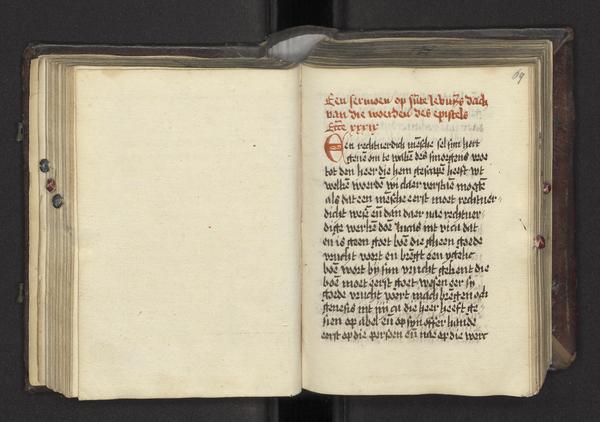 69
Een sermoen op sūte lebuīꝰ dach
van die woerden des epistels
Ecce xxxix
Een rechtuerdich mēsche sel sijn hert
geuē om te wakē des smorgens vroe
tot den heer die hem gescapē heeft wt
welkē woerdē wi claer verstaen mogē
als dat een mēsche eerst moet rechtuer
dich wesē eñ dan daer nae rechtuer
dige werkē doē lucas int vi ca dat
en is geen goet boē die gheen goede
vrucht voert en brēgt een ygelic
boē wort bi sijn vrucht gekent die
boē moet eerst goet wesen eer sy
goede vrucht voert mach brēgen och
genesis int iiij ca die heer heeft ge
sien op abel eñ op sijn offerhande
eerst op die persoen eñ nae op die werc